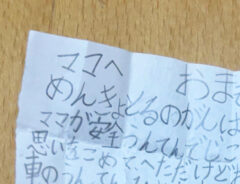 ママへ おま
めんきょとるのがんば
ママが安全うんてんでじこ
思いをこめて、へただけど
車のうんてん